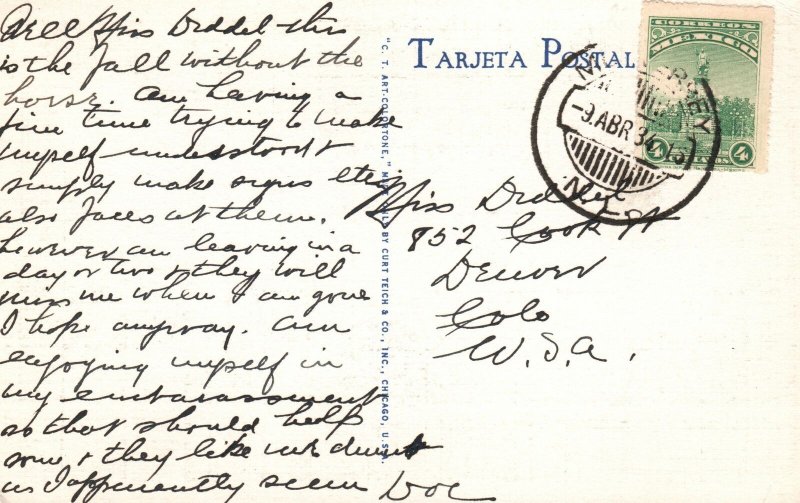 Well Miss Diddel this
is the fall without the
horse. Am having a
fine time trying to make
myself understood &
simply make signs etc
also faces at them.
however am leaving in a
day or two & they will
miss me when I am gone
I hope anyway. Am
enjoying myself in
my embarassment
so that should help
some & they like
as I apparently seem Doc
"C. T. ART-COLORTONE," BY CURT TEICH & CO., INC., CHICAGO, U.S.A.
TARJETA POSTAL
CORREOS
MEXICO
4 4
9. ABR 34
Miss Diddel
852 Cook St
Denver
Colo
U.S.A.